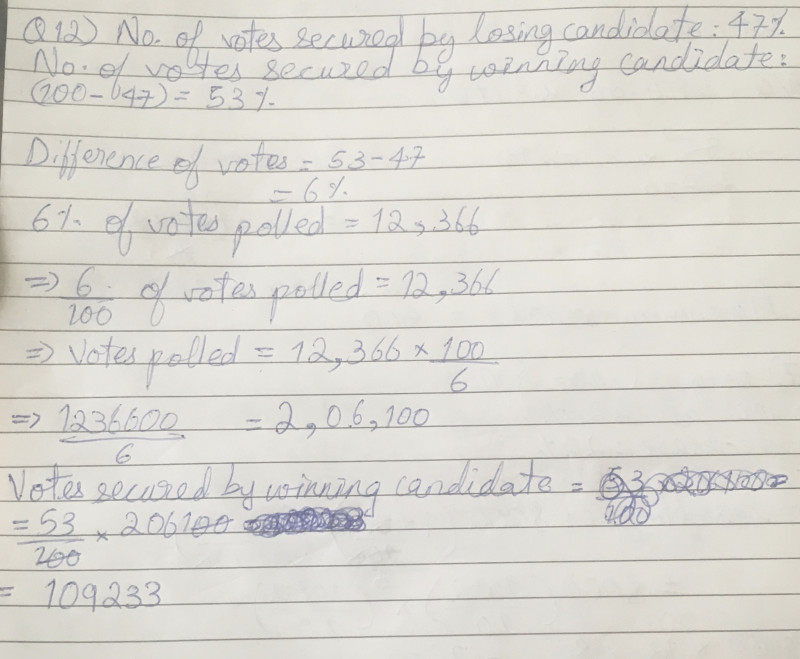 Q12) No. of votes secured by losing candidate: 47%
No. of votes secured by winning candidate:
(100-47) = 53%
Difference of votes = 53-47
= 6%
6% of votes polled = 12,366
=> 6/100 of votes polled = 12,366
=> Votes polled = 12,366 × 100/6
=> 1236600/6 = 2,06,100
Votes secured by winning candidate =
= 53/100 × 206100
= 109233